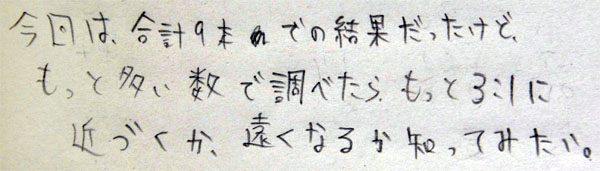 今回は、合計9本での結果だったけど、
もっと多い数で調べたら、もっと3:1に
近づくか、遠くなるか知ってみたい。